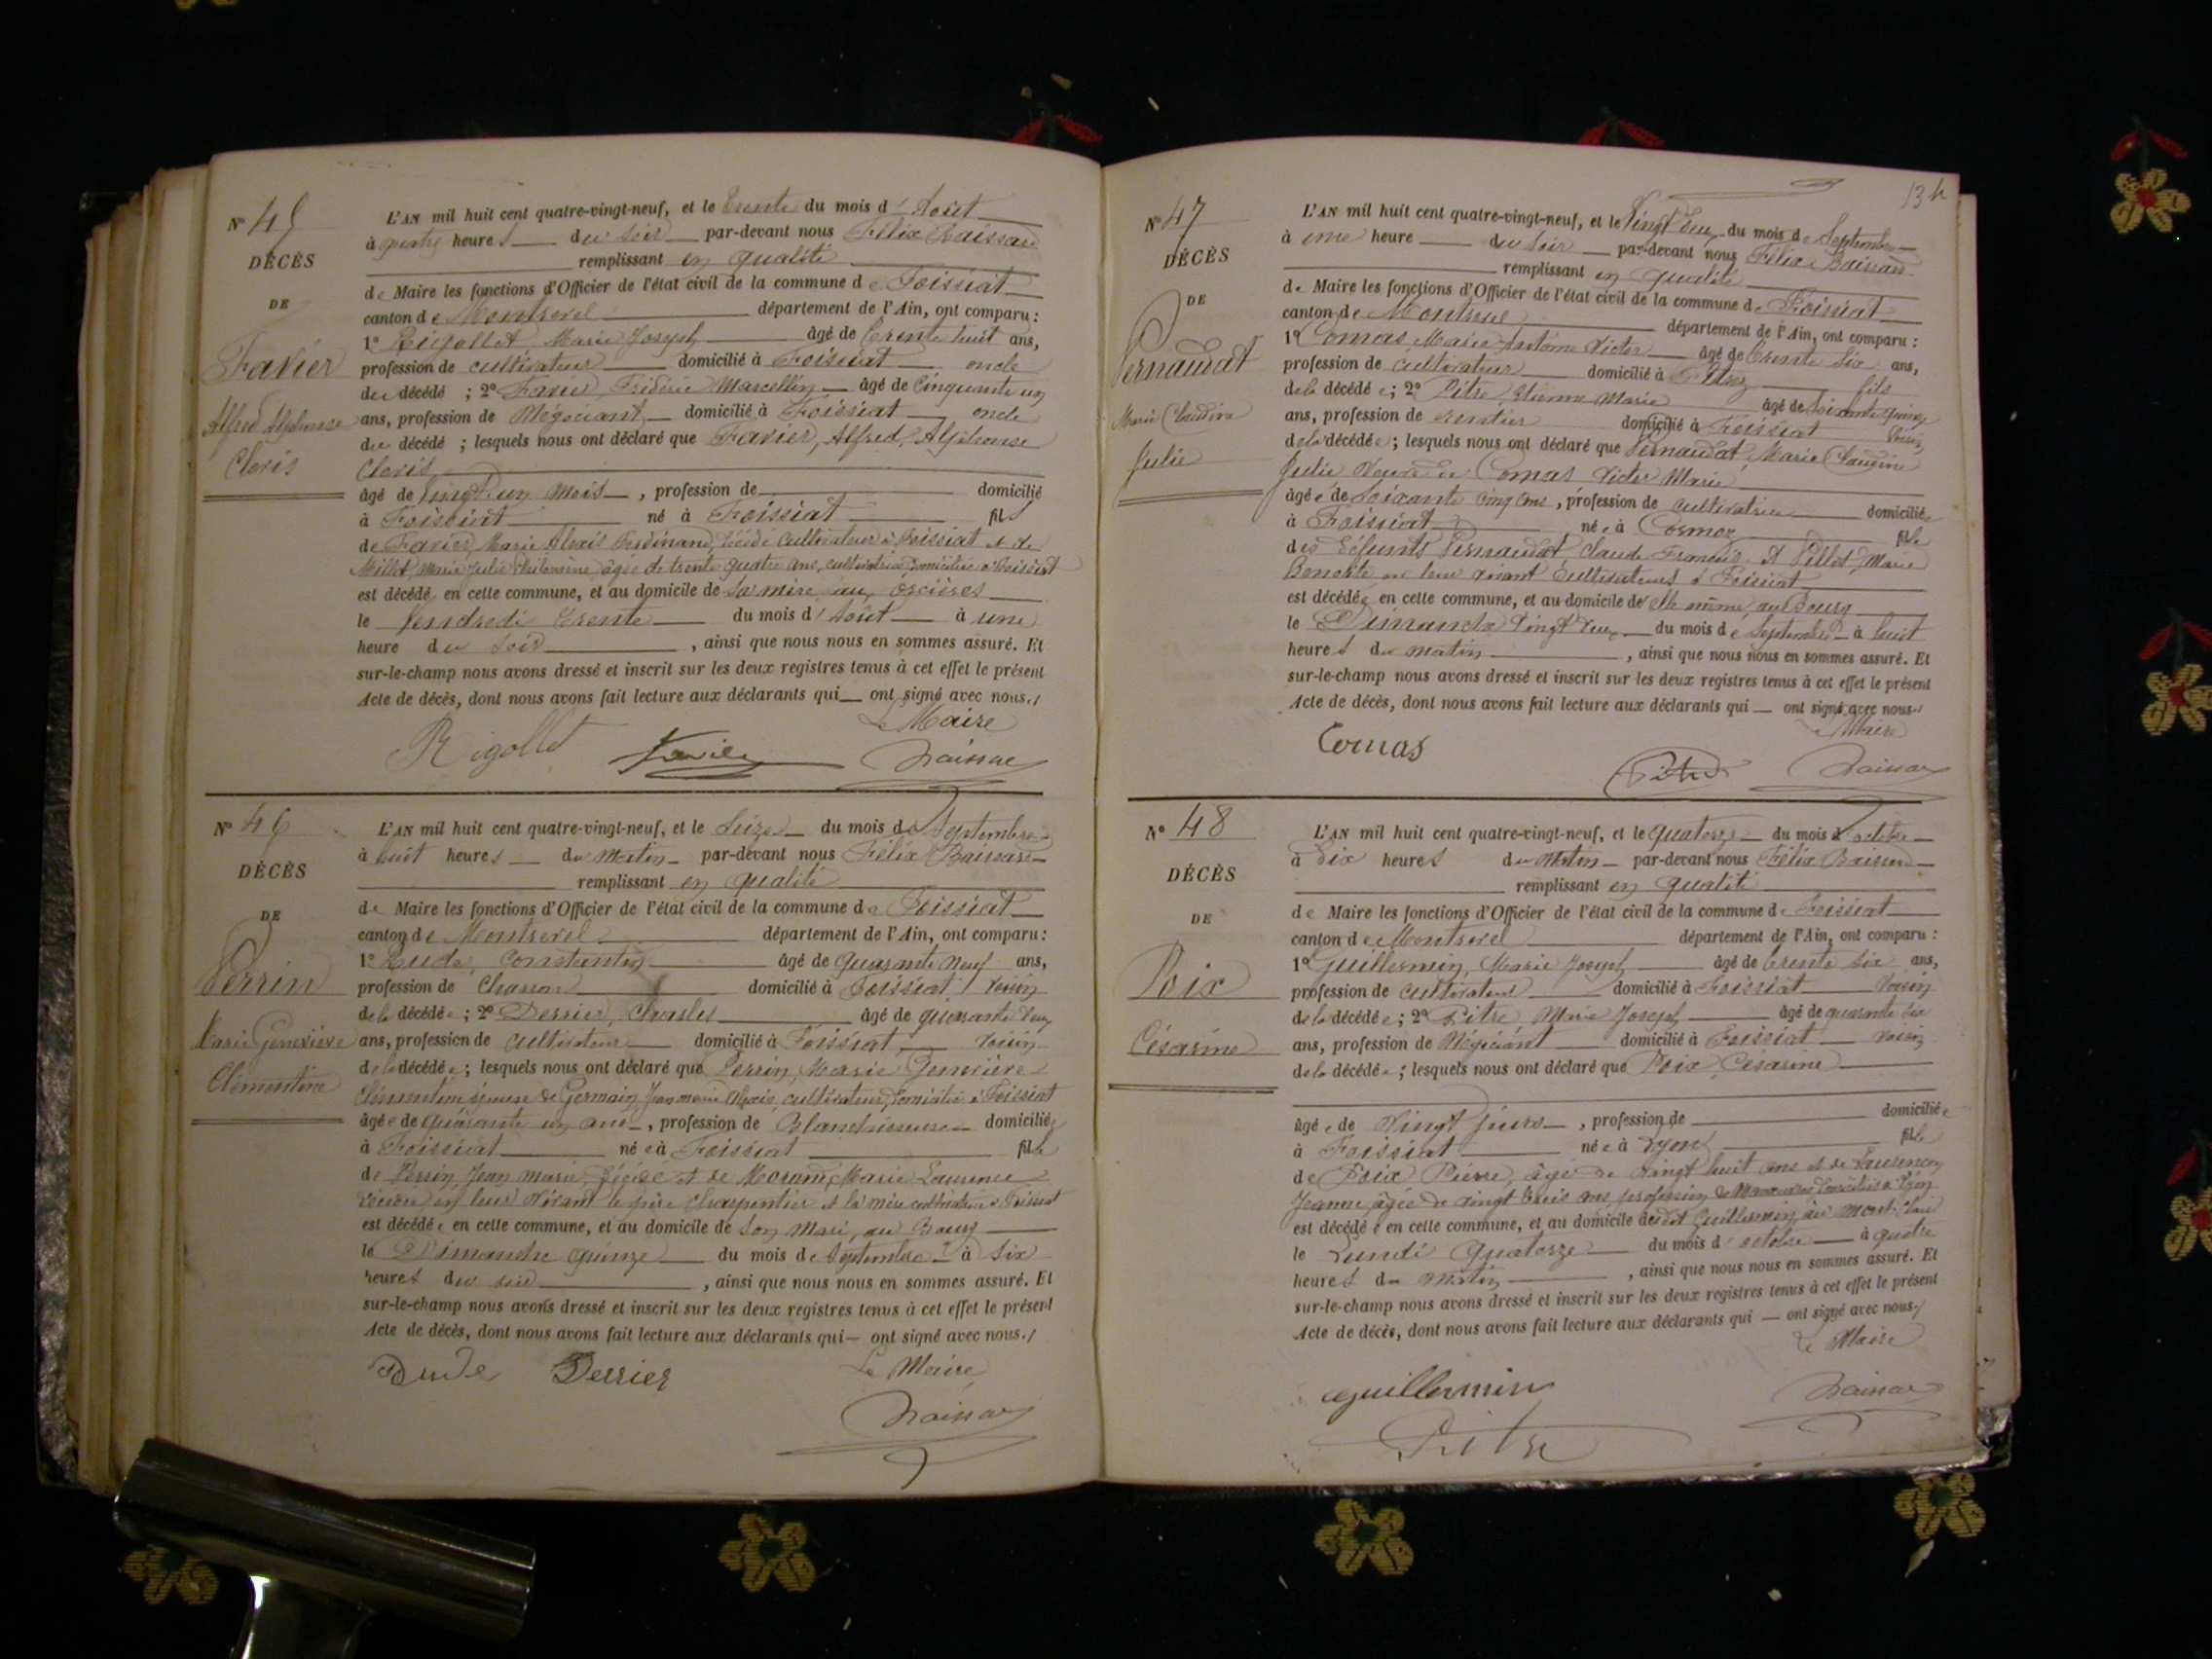 N° 45
DÉCÈS
DE
Favier
Alfred Alphonse
Cloris
L'AN mil huit cent quatre-vingt-neuf, et le trente du mois d'Août
à quatre heures du soir par-devant nous Félix Baissard
remplissant en qualité
de Maire les fonctions d'Officier de l'état civil de la commune de Foissiat
canton de Montrevel département de l'Ain, ont comparu :
1° Rigollet Marie Joseph âgé de trente huit ans,
profession de cultivateur domicilié à Foissiat oncle
du décédé ; 2° Favier, Frédéric Marcellin âgé de cinquante un
ans, profession de Négociant domicilié à Foissiat oncle
du décédé ; lesquels nous ont déclaré que Favier, Alfred, Alphonse
Cloris
âgé de Vingt un mois, profession de domicilié
à Foissiat né à Foissiat fils
de Favier, Marie Alexis Ferdinand, décédé cultivateur à Foissiat et de
Millet, Marie Julie Philomène, âgée de trente quatre ans, cultivatrice domiciliée à Foissiat
est décédé en cette commune, et au domicile de sa mère, aux
le Vendredi trente du mois d'Août à une
heure du soir, ainsi que nous nous en sommes assuré. Et
sur-le-champ nous avons dressé et inscrit sur les deux registres tenus à cet effet le présent
Acte de décès, dont nous avons fait lecture aux déclarants qui ont signé avec nous./
Le Maire
Rigollet Favier Baissard
N° 46
DÉCÈS
DE
Perrin
Marie Geneviève
Clémentine
L'AN mil huit cent quatre-vingt-neuf, et le Seize du mois de Septembre
à huit heures du Matin par-devant nous Félix Baissard
remplissant en qualité
de Maire les fonctions d'Officier de l'état civil de la commune de Foissiat
canton de Montrevel département de l'Ain, ont comparu :
1° Rude, Constantin âgé de quarante neuf ans,
profession de Charron domicilié à Foissiat voisin
de la décédée ; 2° Perrier, Charles âgé de quarante deux
ans, profession de cultivateur domicilié à Foissiat, voisin
de la décédée ; lesquels nous ont déclaré que Perrin, Marie Geneviève
Clémentine épouse de Germain, Jean marie Alexis, cultivateur, domicilié à Foissiat
âgée de quarante un ans, profession de Blanchisseuse domiciliée
à Foissiat née à Foissiat fille
de Perrin, Jean marie, décédé et de Morand, Marie Laurence
en leur vivant le père Charpentier et la mère cultivatrice à Foissiat
est décédée en cette commune, et au domicile de son mari, au Bourg
le Dimanche quinze du mois de Septembre à six
heures du soir, ainsi que nous nous en sommes assuré. Et
sur-le-champ nous avons dressé et inscrit sur les deux registres tenus à cet effet le présent
Acte de décès, dont nous avons fait lecture aux déclarants qui — ont signé avec nous./
Rude Perrier Le Maire
Baissard
134
N° 47
DÉCÈS
DE
Pernaudat
Marie Claudine
Julie
L'AN mil huit cent quatre-vingt-neuf, et le Vingt deux du mois de Septembre
à une heure du soir par-devant nous Félix Baissard
remplissant en qualité
de Maire les fonctions d'Officier de l'état civil de la commune de Foissiat
canton de Montrevel département de l'Ain, ont comparu :
1° Comas, Marie Antoine Victor âgé de trente six ans,
profession de cultivateur domicilié à fils
de la décédée ; 2° Pitre, Etienne Marie âgé de soixante quinze
ans, profession de rentier domicilié à Foissiat voisin
de la décédée ; lesquels nous ont déclaré que Pernaudat, Marie Claudine
Julie Veuve de Comas Victor Marie
âgée de soixante cinq ans, profession de cultivatrice domiciliée
à Foissiat née à Cormoz fille
des défunts Pernaudat Claude François et Pillot, Marie
Benoîte en leur vivant cultivateurs à Foissiat
est décédée en cette commune, et au domicile de elle même au Bourg
le Dimanche Vingt deux du mois de Septembre à huit
heures du matin, ainsi que nous nous en sommes assuré. Et
sur-le-champ nous avons dressé et inscrit sur les deux registres tenus à cet effet le présent
Acte de décès, dont nous avons fait lecture aux déclarants qui — ont signé avec nous./
Le Maire
Comas Pitre Baissard
N° 48
DÉCÈS
DE
Poix
Césarine
L'AN mil huit cent quatre-vingt-neuf, et le quatorze du mois d'octobre
à dix heures du Matin par-devant nous Félix Baissard
remplissant en qualité
de Maire les fonctions d'Officier de l'état civil de la commune de Foissiat
canton de Montrevel département de l'Ain, ont comparu :
1° Guillermin, Marie Joseph âgé de trente six ans,
profession de cultivateur domicilié à Foissiat voisin
de la décédée ; 2° Pitre Marie Joseph âgé de quarante six
ans, profession de Négociant domicilié à Foissiat voisin
de la décédée ; lesquels nous ont déclaré que Poix Césarine
âgée de Vingt jours, profession de domiciliée
à Foissiat née à Lyon fille
de Poix Pierre, âgé de vingt huit ans et de Laurençon
Jeanne âgée de vingt trois ans, profession de domiciliés à Lyon
est décédée en cette commune, et au domicile dudit Guillermin, au
le Lundi Quatorze du mois d'octobre à quatre
heures du Matin, ainsi que nous nous en sommes assuré. Et
sur-le-champ nous avons dressé et inscrit sur les deux registres tenus à cet effet le présent
Acte de décès, dont nous avons fait lecture aux déclarants qui — ont signé avec nous./
Le Maire
Guillermin Baissard
Pitre